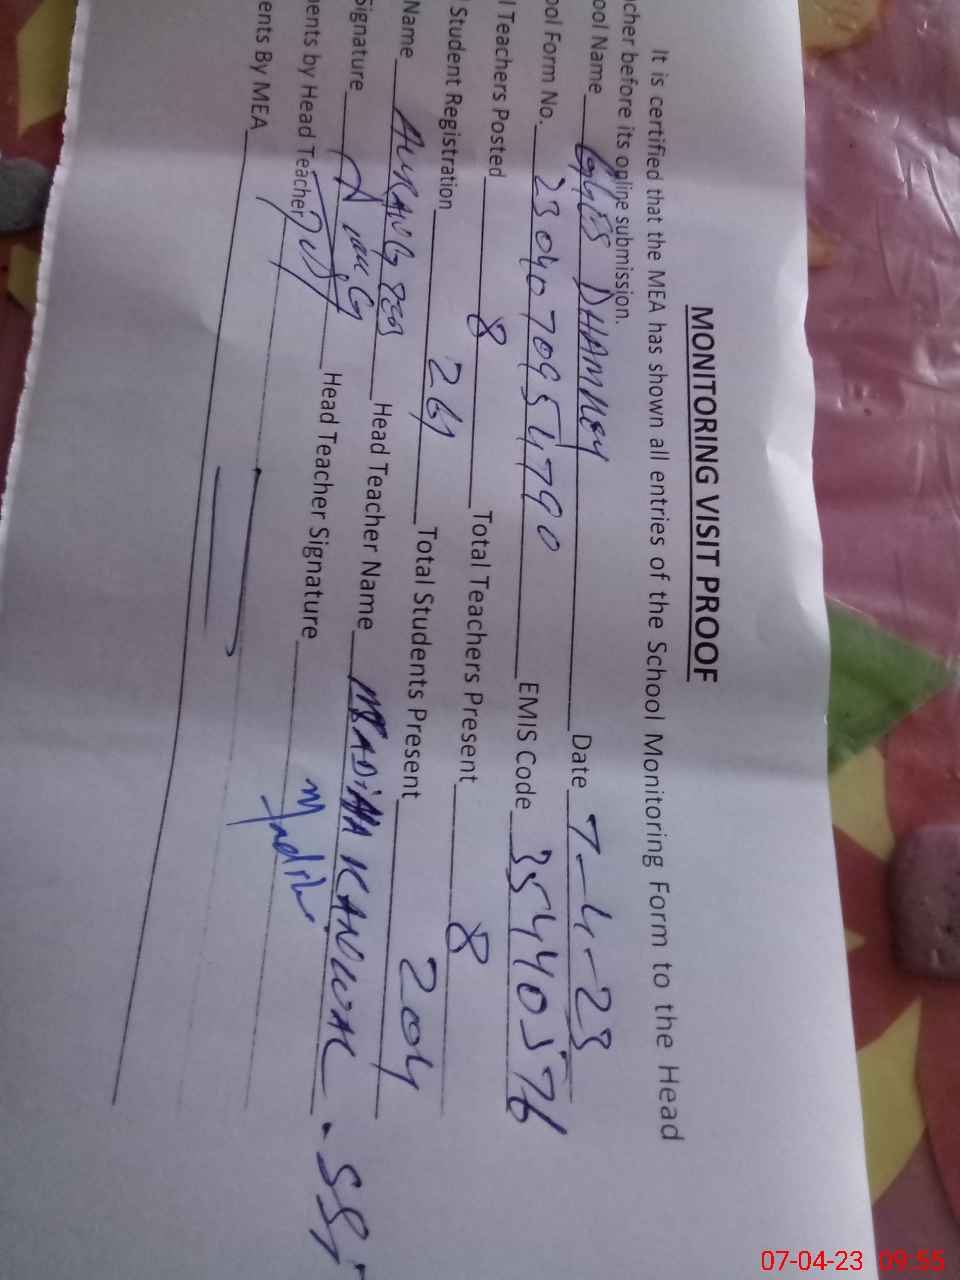 MONITORING VISIT PROOF
It is certified that the MEA has shown all entries of the School Monitoring Form to the Head
cher before its online submission.
ool Name GGES DHAMKEY Date 7-4-23
ool Form No. 2304070954790 EMIS Code 35440376
l Teachers Posted 8 Total Teachers Present 8
Student Registration 261 Total Students Present 204
Name Head Teacher Name MADIHA KANWAL . SST
Signature Head Teacher Signature Madiha
ents by Head Teacher
ents By MEA
07-04-23 09:55